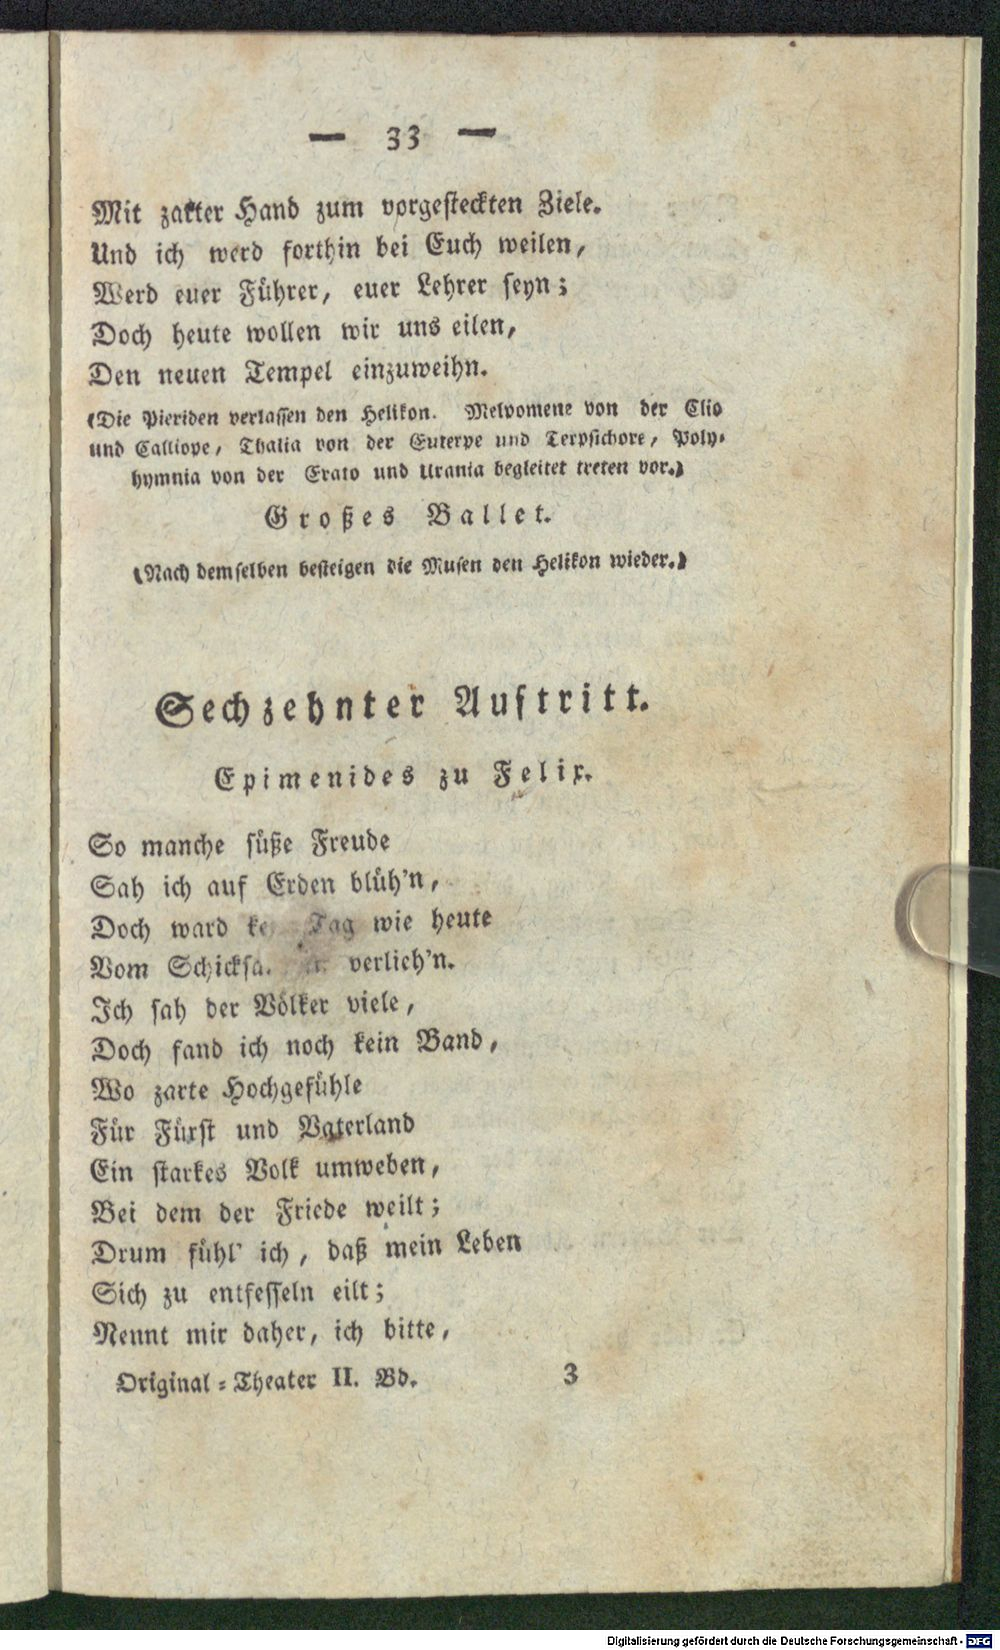 — 33 —
Mit zarter Hand zum vorgesteckten Ziele.
Und ich werd forthin bei Euch weilen,
Werd euer Führer, euer Lehrer seyn;
Doch heute wollen wir uns eilen,
Den neuen Tempel einzuweihn.
(Die Pieriden verlassen den Helikon. Melpomene von der Clio
und Calliope, Thalia von der Euterpe und Terpsichore, Poly-
hymnia von der Erato und Urania begleitet treten vor.)
Großes Ballet.
(Nach demselben besteigen die Musen den Helikon wieder.)
Sechzehnter Auftritt.
Epimenides zu Felix.
So manche süße Freude
Sah ich auf Erden blüh'n,
Doch ward Tag wie heute
Vom verlieh'n.
Ich sah der Völker viele,
Doch fand ich noch kein Band,
Wo zarte Hochgefühle
Für Fürst und Vaterland
Ein starkes Volk umweben,
Bei dem der Friede weilt;
Drum fühl' ich, daß mein Leben
Sich zu entfesseln eilt;
Nennt mir daher, ich bitte,
Original-Theater II. Bd. 3
Digitalisierung gefördert durch die Deutsche Forschungsgemeinschaft - DFG